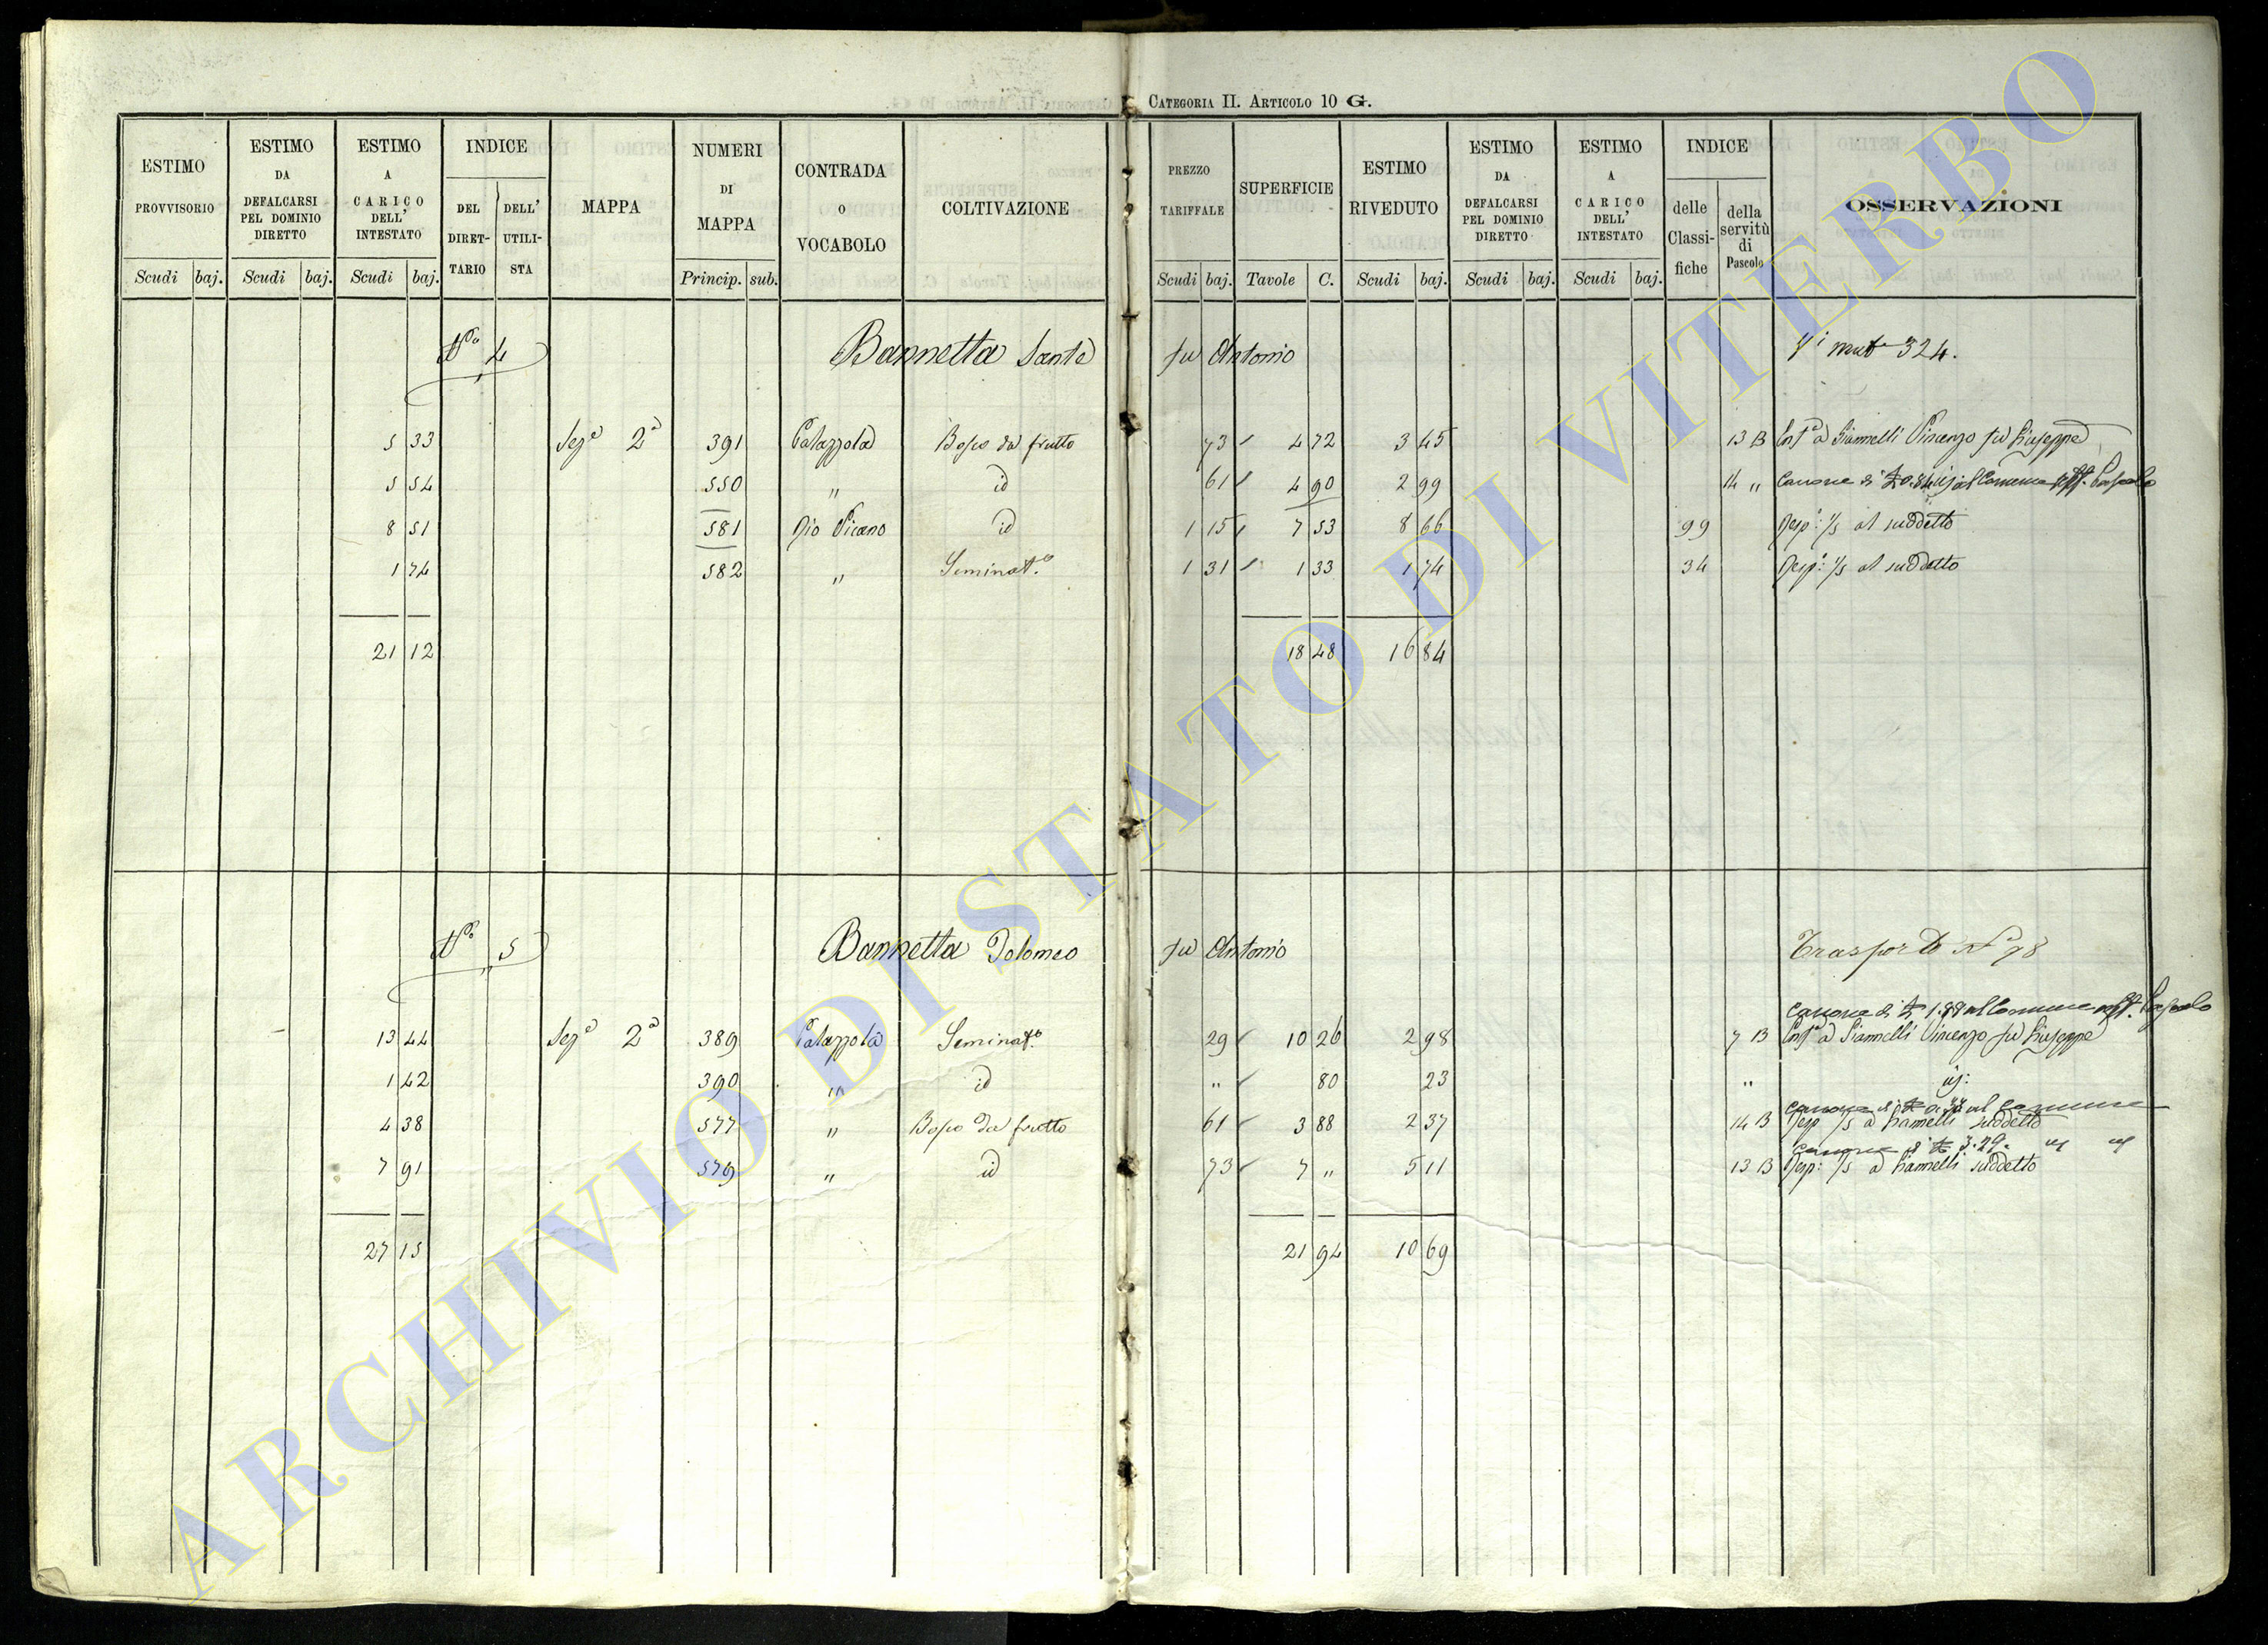 CATEGORIA II. ARTICOLO 10 G.
ESTIMO PROVVISORIO Scudi baj.
ESTIMO DA DEFALCARSI PEL DOMINIO DIRETTO Scudi baj.
ESTIMO A CARICO DELL' INTESTATO Scudi baj.
INDICE DEL DIRET- TARIO DELL' UTILI- STA
MAPPA
NUMERI DI MAPPA Princip. sub.
CONTRADA O VOCABOLO
COLTIVAZIONE
PREZZO TARIFFALE Scudi baj.
SUPERFICIE Tavole C.
ESTIMO RIVEDUTO Scudi baj.
ESTIMO DA DEFALCARSI PEL DOMINIO DIRETTO Scudi baj.
ESTIMO A CARICO DELL' INTESTATO Scudi baj.
INDICE delle Classi- fiche della servitù di Pascolo
OSSERVAZIONI
No 4 Bannetta Sante fu Antonio mut 324.
5 33 Seze 2a 391 Palazzola Bosco da frutto 73 4 72 3 45 13 B a Giannelli Vincenzo fu Giuseppe
5 54 550 " id 61 4 90 2 99 14 " Canone di 0.84 al Comune
8 51 581 Gio Picano id 1 15 7 53 8 66 99 al suddetto
1 74 582 " Seminato 1 31 1 33 1 74 34 al suddetto
21 12 18 48 16 84
No 5 Bannetta Tolomeo fu Antonio Trasporto No 98
Canone di al Comune
13 44 Seze 2a 389 Palazzola Seminato 29 10 26 2 98 7 B a Giannelli Vincenzo fu Giuseppe
1 42 390 " id " 80 23 "
Canone di al Comune
4 38 577 " Bosco da frutto 61 3 88 2 37 14 B a Giannelli suddetto
Canone di 3.29.
7 91 579 " id 73 7 " 5 11 13 B a Giannelli suddetto
27 15 21 94 10 69
ARCHIVIO DI STATO DI VITERBO